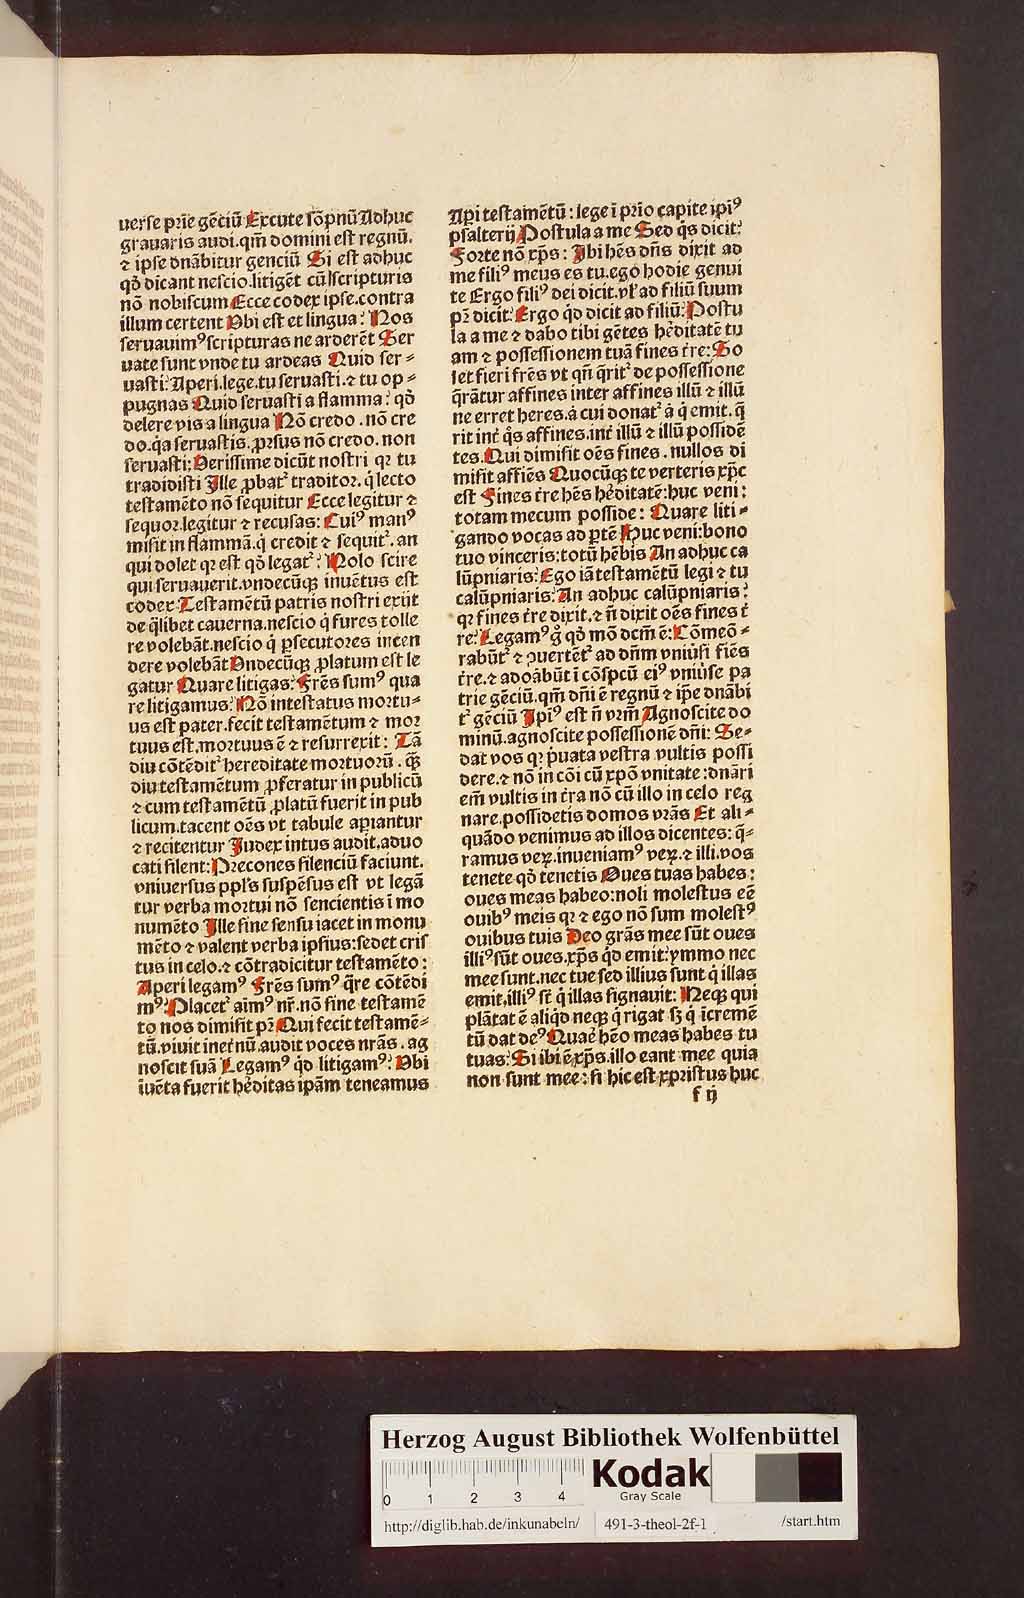 verse pr̄ie gẽciũ Excute sõpnũ Adhuc
grauaris audi.qm̄ domini est regnũ.
⁊ ipse dnãbitur genciũ Si est adhuc
qð dicant nescio.litigẽt cũ scripturis
nõ nobiscum Ecce codex ipse.contra
illum certent Vbi est et lingua? Nos
seruauimꝰ scripturas ne arderẽt Ser
uate sunt vnde tu ardeas Quid ser-
uasti? Aperi.lege.tu seruasti.⁊ tu op-
pugnas Quid seruasti a flamma? qð
delere vis a lingua Nõ credo.nõ cre
do.q̇a seruastis.ꝓrsus nõ credo.non
seruasti: Verissime dicũt nostri qꝛ tu
tradidisti Ille ꝓbatᷣ traditor.q̇ lecto
testamẽto nõ sequitur Ecce legitur ⁊
sequor.legitur ⁊ recusas: Cuiꝰ manꝰ
misit in flammã.q̇ credit ⁊ sequitᷣ.an
qui dolet qꝛ est qð legatᷣ? Nolo scire
qui seruauerit.vndecũqꝫ inuẽtus est
codex: Testamẽtũ patris nostri exijt
de q̃libet cauerna.nescio q̇ fures tolle
re volebãt.nescio q̇ ꝑsecutores inten
dere volebãt Vndecũqꝫ ꝓlatum est le
gatur Quare litigas? Frẽs sumꝰ qua
re litigamus? Nõ intestatus mortu-
us est pater.fecit testamẽtum ⁊ mor
tuus est.mortuus ẽ ⁊ resurrexit: Tã
diu cõtẽditᷣ hereditate mortuorũ.qᷓꝫ
diu testamẽtum ꝓferatur in publicũ
⁊ cum testamẽtũ ꝓlatũ fuerit in pub
licum.tacent oẽs vt tabule apiantur
⁊ recitentur Iudex intus audit.aduo
cati silent: Precones silenciũ faciunt.
vniuersus ppl's suspẽsus est vt legã
tur verba mortui nõ sencientis ĩ mo
numẽto Ille sine sensu iacet in monu
mẽto ⁊ valent verba ipsius:sedet cris
tus in celo.⁊ cõtradicitur testamẽto:
Aperi legamꝰ Frẽs sumꝰ q̃re cõtẽdi
mꝰ? Placetᷣ aim̃ꝰ nr̃.nõ sine testamẽ
to nos dimisit pr̃ Qui fecit testamẽ-
tũ.viuit inet̃nũ.audit voces nrãs.ag
noscit suã Legamꝰ q̇d litigamꝰ? Vbi
ĩuẽta fuerit hẽditas ip̃am teneamus
Ap̃i testamẽtũ:lege ĩ pr̃io capite ip̃iꝰ
psalterij Postula a me Sed q̇s dicit?
Forte nõ xp̃s: Ibi hẽs dñs dixit ad
me filiꝰ meus es tu.ego hodie genui
te Ergo filiꝰ dei dicit.vl' ad filiũ suum
pr̃ dicit? Ergo q̇d dicit ad filiũ: Postu
la a me ⁊ dabo tibi gẽtes hẽditatẽ tu
am ⁊ possessionem tuã fines t̃re: So
let fieri frẽs vt qñ q̃ritᷣ de possessione
q̃rãtur affines inter affines illũ ⁊ illũ
ne erret heres.a cui donatᷣ a q̇ emit.q̃
rit int̃ q̇s affines.int̃ illũ ⁊ illũ possidẽ
tes. Qui dimisit oẽs fines.nullos di
misit affiẽs Quocũqꝫ te verteris xp̃c
est Fines t̃re hẽs hẽditatẽ:huc veni:
totam mecum posside: Quare liti-
gando vocas ad ꝑtẽ Huc veni:bono
tuo vinceris:totũ hẽbis An adhuc ca
lũpniaris: Ego iã testamẽtũ legi ⁊ tu
calũpniaris: An adhuc calũpniaris?
qꝛ fines t̃re dixit.⁊ ñ dixit oẽs fines t̃
re? Legamꝰ g̊ qð mõ dcm̃ ẽ: Cõmeõ-
rabũtᷣ ⁊ ꝯuertẽtᷣ ad dñm vniũsi fiẽs
t̃re.⁊ adoãbũt ĩ cõspcũ eiꝰ vniũse pa
trie gẽciũ.qm̄ dñi ẽ regnũ ⁊ ip̃e dnãbi
tᷣ gẽciũ Ip̃iꝰ est ñ vrm̃ Agnoscite do
minũ.agnoscite possessionẽ dñi: Se-
dat vos qꝛ p̃uata vestra vultis possi
dere.⁊ nõ in cõi cũ xp̃o vnitate:dnãri
em̃ vultis in t̃ra nõ cũ illo in celo reg
nare.possidetis domos vrãs Et ali-
quãdo venimus ad illos dicentes: q̃-
ramus veꝝ.inueniamꝰ veꝝ.⁊ illi.vos
tenete qð tenetis Oues tuas habes:
oues meas habeo:noli molestus eẽ
ouibꝰ meis qꝛ ⁊ ego nõ sum molestꝰ
ouibus tuis Deo grãs mee sũt oues
illiꝰ sũt oues.xp̃s q̇d emit:ymmo nec
mee sunt.nec tue sed illius sunt q̇ illas
emit.illiꝰ st̃ q̇ illas signauit: Neqꝫ qui
plãtat ẽ aliq̇d neqꝫ q̇ rigat sꝫ q̇ icremẽ
tũ dat deꝰ Quar̃ hẽo meas habes tu
tuas: Si ibi ẽ xp̃s.illo eant mee quia
non sunt mee:si hic est xpristus huc
f ij
Herzog August Bibliothek Wolfenbüttel
0 1 2 3 4
Kodak
Gray Scale
http://diglib.hab.de/inkunabeln/ 491-3-theol-2f-1 /start.htm